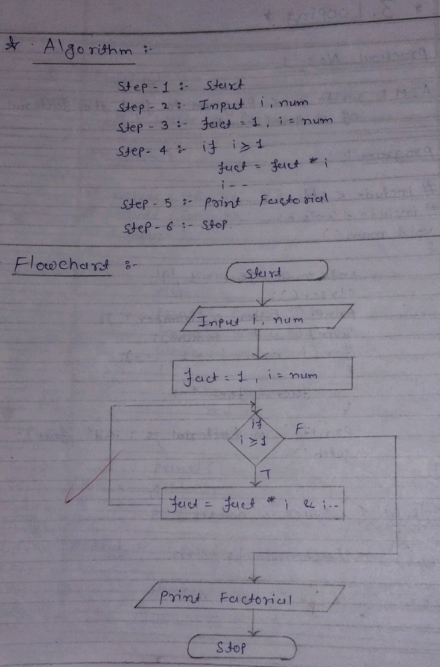 * Algorithm :-
Step - 1 :- Start
Step - 2 :- Input i, num
Step - 3 :- fact = 1, i = num
Step - 4 :- if i ≥ 1
fact = fact * i
i--
Step - 5 :- Print Factorial
Step - 6 :- Stop
Flowchart :-
Start
Input i, num
fact = 1, i = num
if
i ≥ 1
F
T
fact = fact * i & i--
Print Factorial
Stop